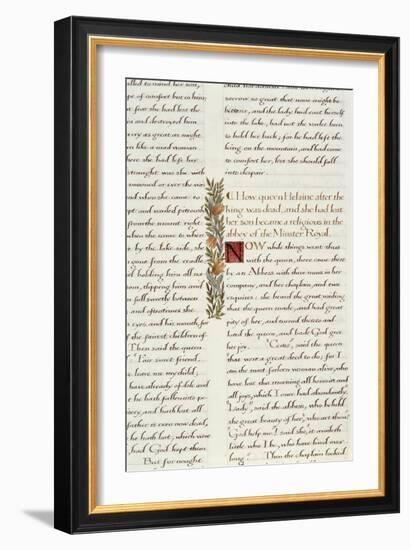 alled to mind her son,
ope of comfort but in him;
t fear she had lost the
en and destroyed him.
cry as great as might
im like a mad woman
where she had left her
straight was she with
swooned or ever she was
nd when she came to
ept and wailed piteously
from the mount right
when she came to where
by the lake-side, she
gone from the cradle
l holding him all na-
ms, clipping him and
m full sweetly between
and oftentimes she
eyes and his mouth, for
the fairest children of
Then said the queen
"Fair sweet friend,
leave me my child;
have already of dole and
be hath fallen into po-
isery, and hath lost all
father is even now dead,
he hath lost, which were
had God kept them.
But for nought
child not abandoned, and her
sorrow so great that none might be
better, and the lady had cast herself
into the lake, had not the varlet been
to hold her back; for he had left the
king on the mountain, and had come
to comfort her, lest she should fall
into despair.
How queen Helaine after the
king was dead, and she had lost
her son became a religious in the
abbey of the Minster Royal.
NOW while things went thus
with the queen, there came there
by an Abbess with three nuns in her
company, and her chaplain, and two
esquires: she heard the great wailing
that the queen made, and had great
pity of her, and turned thereto and
hailed the queen, and bade God give
her joy. "Certes", said the queen
"that were a great deed to do; for I
am the most forlorn woman alive, who
have lost this morning all honour and
all joys, which I once had abundantly.
"Lady", said the abbess, who beheld
the great beauty of her, "who art thou?"
"God help me! I said she, it availeth
little who I be, who have lived over
long." Then the chaplain looked